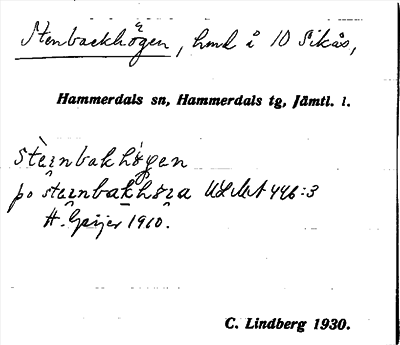 Stenbackhögen, hmd å 10 Sikås,
Hammerdals sn, Hammerdals tg, Jämtl. l.
stæ̀ɪnbakhö́gen
po stæɪnbakhöɡa ULMA 446:3
H. Geijer 1910.
C. Lindberg 1930.